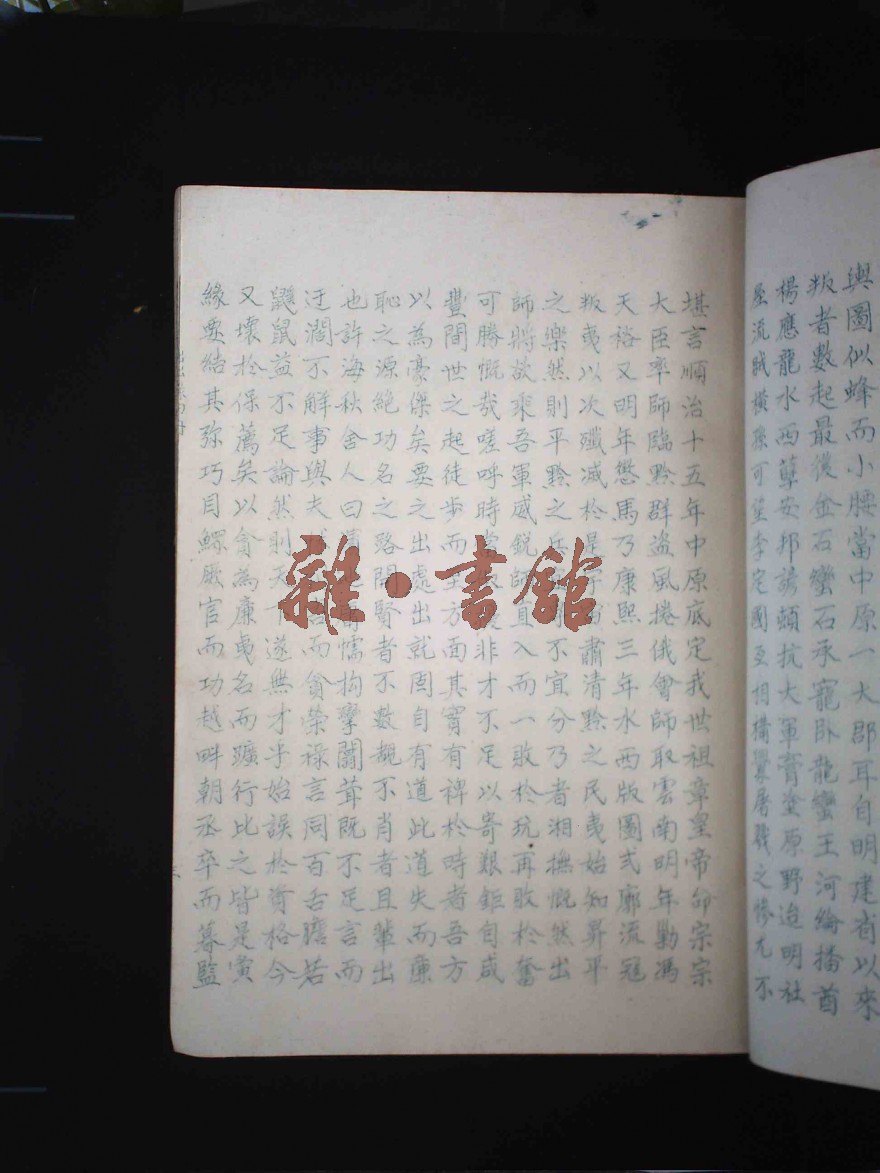 輿圖似蜂而小腰當中原一大郡耳自明建省以來
叛者數起最後金石蠻石承寵臥龍蠻王河綸播酋
楊應龍水西孽安邦諺頡抗大軍膏塗原野迨明社
屋流賊橫孫可望李定國互相搆釁屠戮之慘尤不
堪言順治十五年中原底定我世祖章皇帝命宗宗
大臣率師臨黔群盜風捲俄會師取雲南明年勦馮
天裕又明年懋馬乃康熙三年水西版圖式廓流冠
叛夷以次殲滅於是肅清黔之民夷始知昇平
之樂然則平黔之兵不宜分乃者湘撫慨然出
師將故乘吾軍威銳師直入而一敗於玩再敗於奮
可勝慨哉嗟呼時非才不足以寄艱鉅自咸
豐間世之起徒步而至方面其實有裨於時者吾方
以為豪傑矣要之出處出就固自有道此道失而廉
恥之源絕功名之路開賢者不數覯不肖者且輩出
也許海秋舍人曰懦拘攣闒茸既不足言而
迂濶不解事與夫而貪榮祿言同百舌膽若
鼷鼠益不足論然則天下遂無才乎始誤於資格今
又壞於保薦矣以貪為廉夷名而蹠行比之皆是寅
緣要結其弥巧目鰥厥官而功越畔朝丞卒而暮監
雜·書館